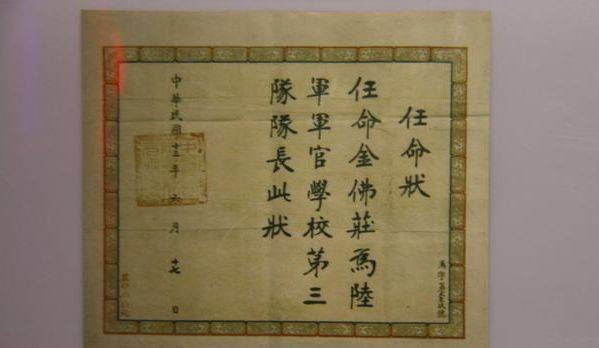 任命狀
任命金佛莊爲陸
軍軍官學校第三
隊隊長此狀
中華民國十三年六月十七日